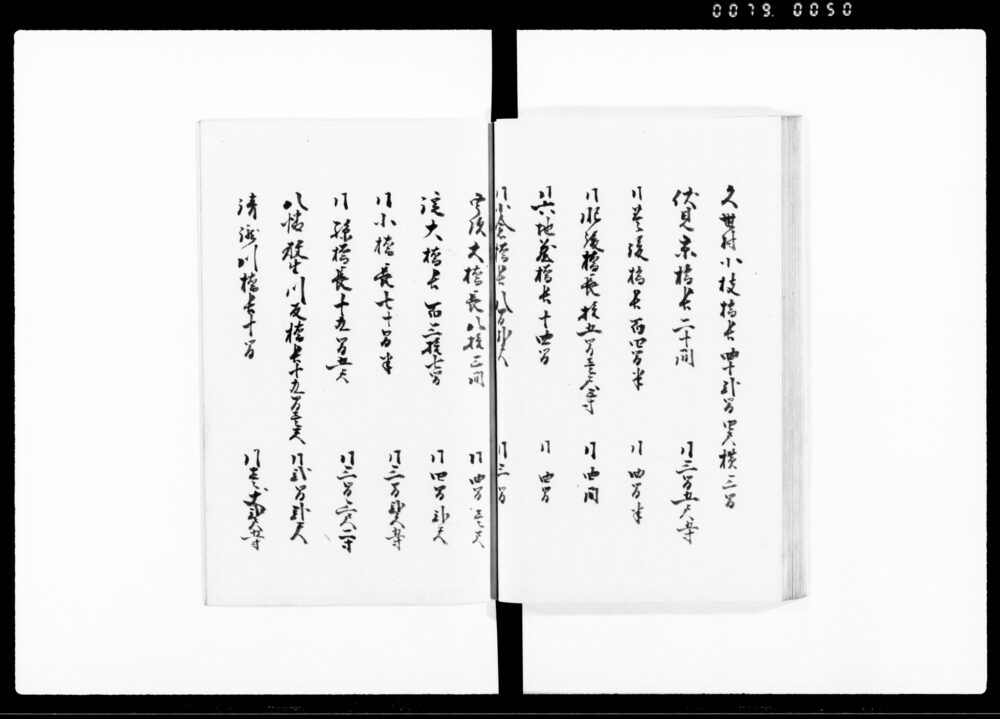 0079 0050
久世村小枝橋長四十弐間四尺横三間
伏見京橋長二十間 同三間五尺五寸
同豊後橋長百四間半 同四間半
同肥後橋長拾五間三尺五寸 同四間
同六地蔵橋長十四間 同四間
同小倉橋長八間弐尺 同三間
宇治大橋長八拾三間 同四間三尺
淀大橋長百三拾七間 同四間弐尺
同小橋長七十間半 同三間弐尺五寸
同孫橋長十五間五尺 同三間二尺二寸
八幡放生川反橋長十五間三尺 同弐間弐尺
川橋長十間